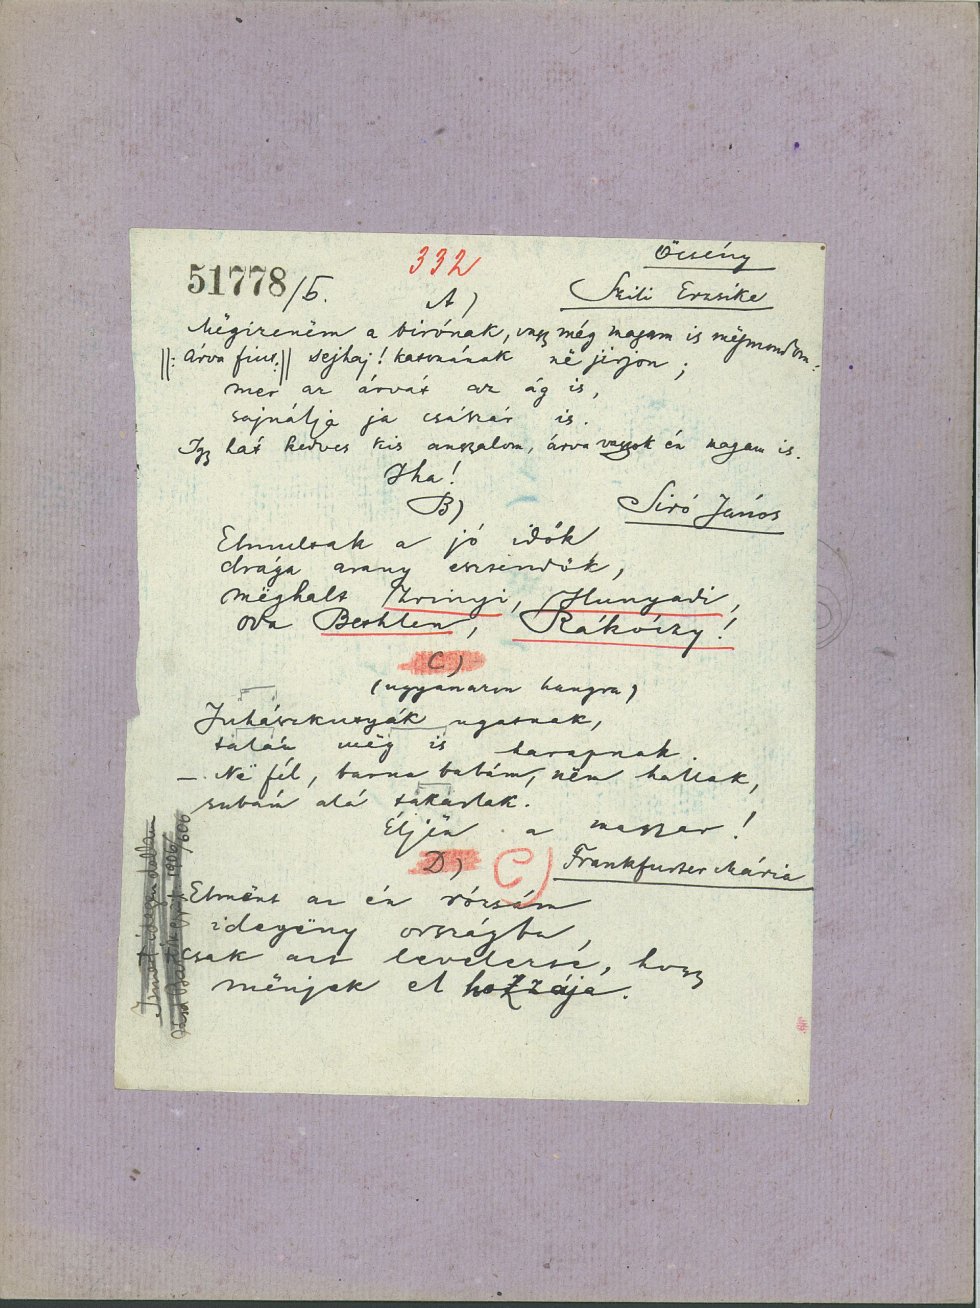 Őcsény
332
51778/b.
A)
Szili Erzsike
Mëgizeném a birónak, vagy még magam is mëjmondom:
||: árva fiut :|| sejhaj! katonának në jirjon;
mer az árvát az ág is,
sajnálja ja császár is.
Igy hát kedves kis angyalom, árva vagyok én magam is.
Iha!
B)
Siró János
Elmultak a jó idők
drága arany esztendők,
mëghalt Zrinyi, Hunyadi,
oda Bethlen, Rákóczy!
C)
(ugyanazon hangra)
Juhászkutyák ugatnak,
talán még is harapnak.
– Në fél, barna babám, nëm hallak,
subám alá takarlak.
Éljën a magyar!
D)
Frankfurter Mária
Elmënt az én rózsám
idegëny országba,
csak azt levelezte, hogy
mënjek el hozzája.